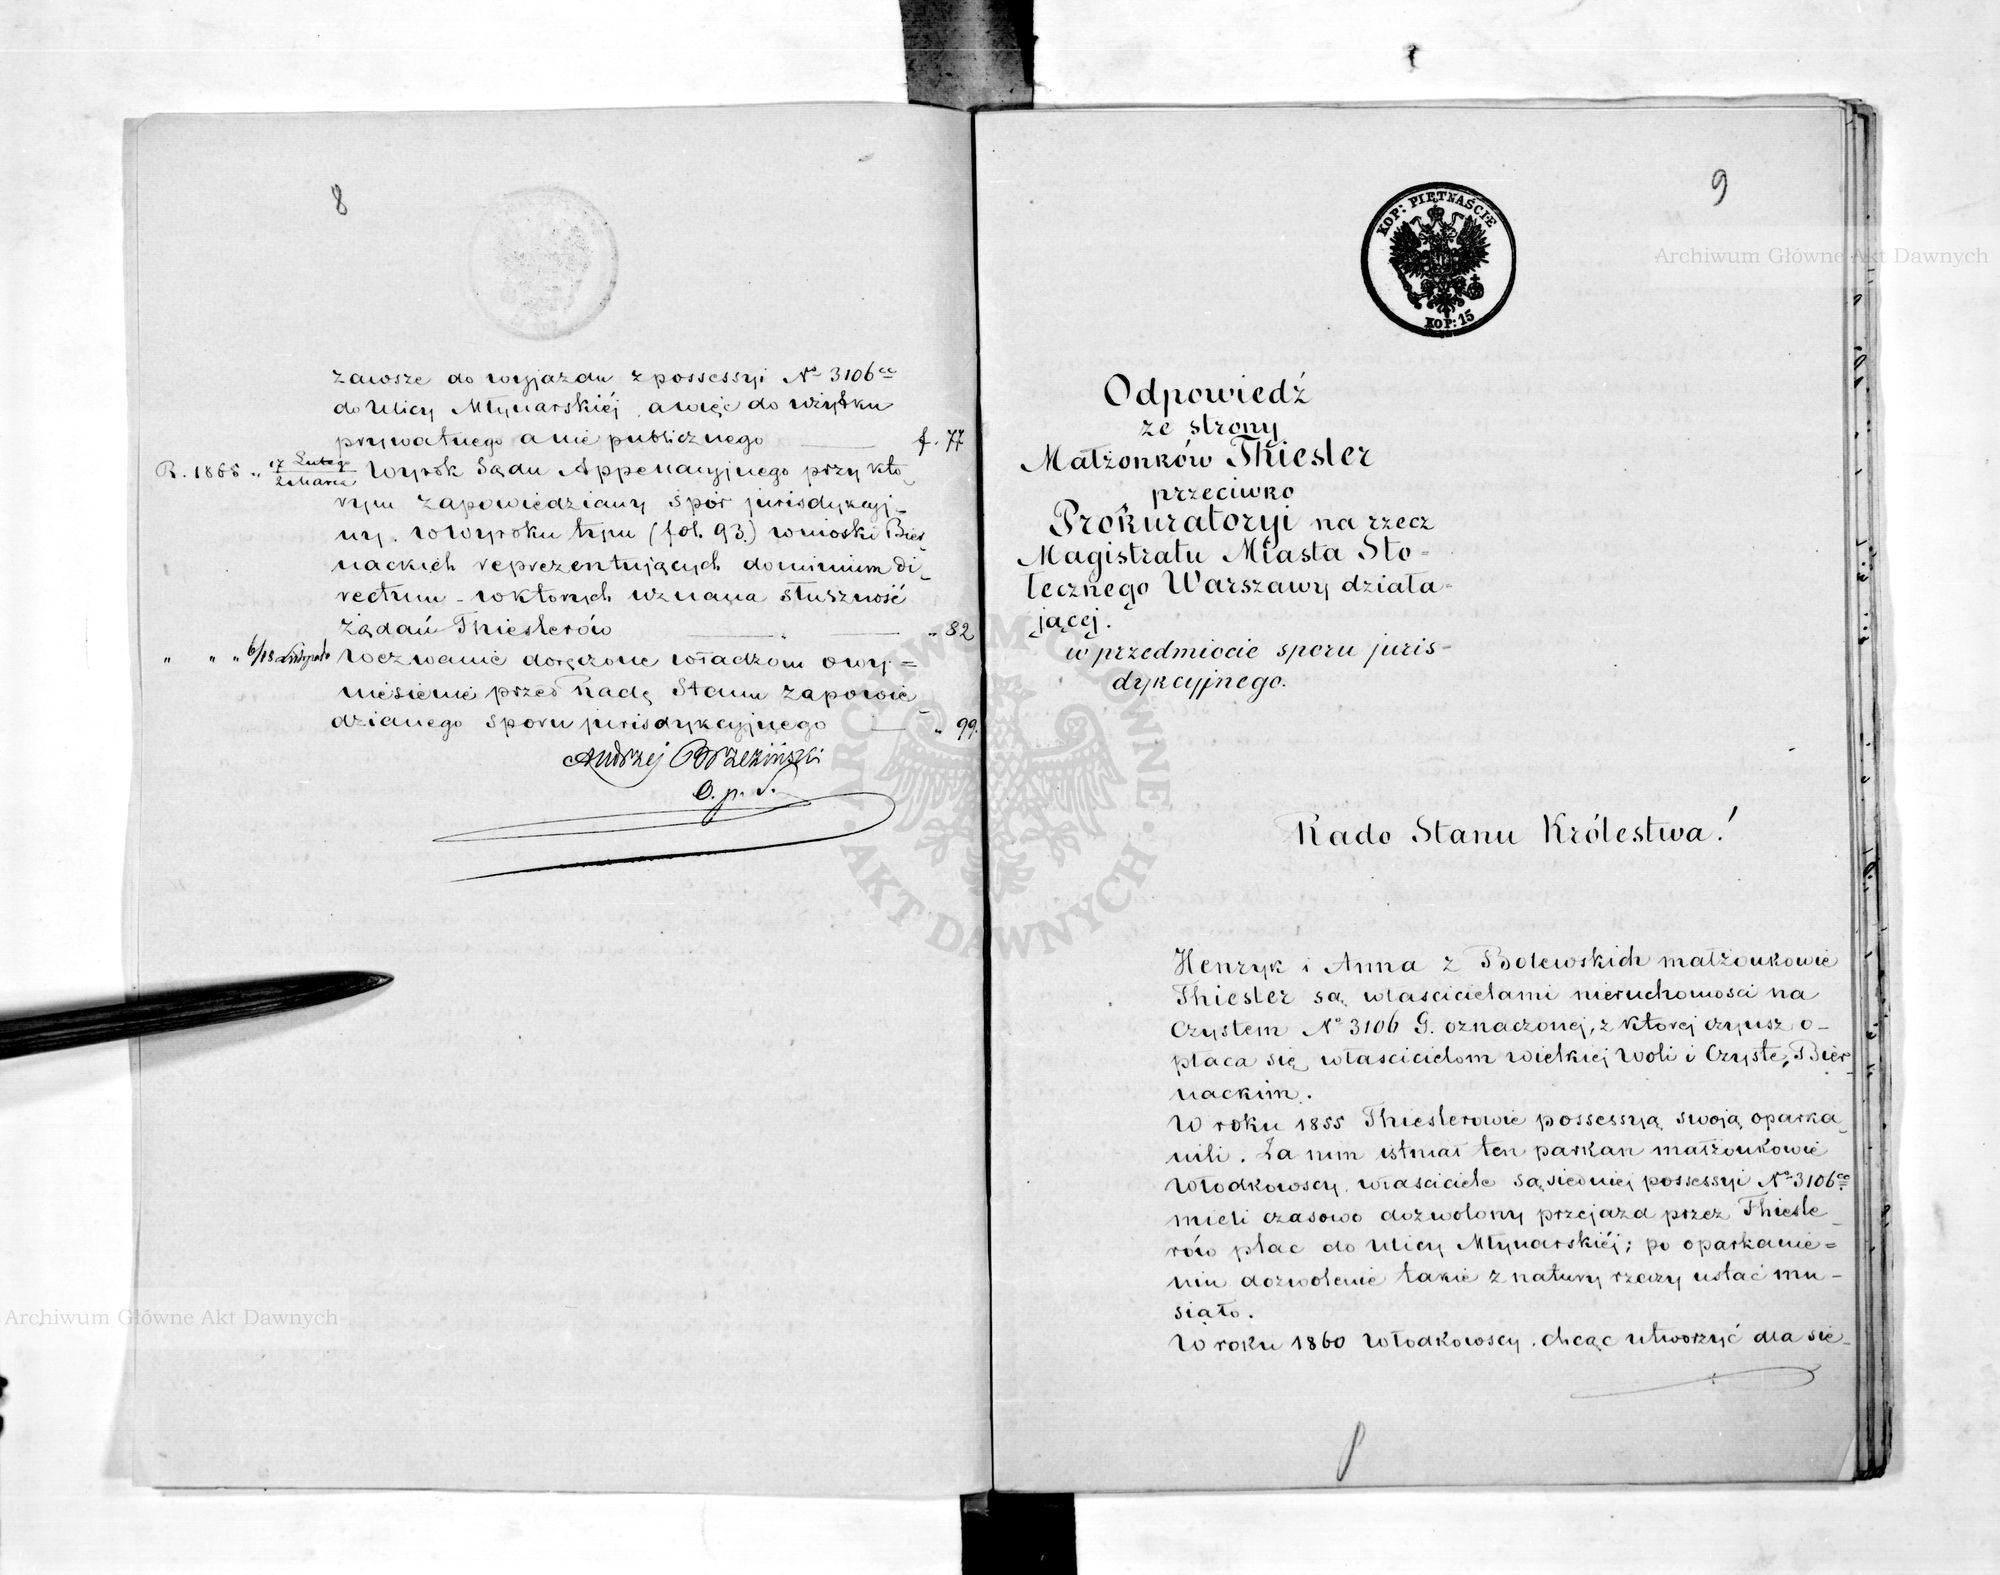 8
zawsze do wyjazdu z possessyi No 3106 cc
do Ulicy Młynarskiéj, a więc do użytku
prywatnego a nie publicznego f. 77
R. 1865 " 17 Lutego
1 Marca Wyrok Sądu Appellacyjnego przy któ-
rym zapowiedziany spór jurisdykcyj-
ny. w Wyroku tym (fol. 93.) wnioski Bier-
nackich reprezentujących dominium di-
rectum - w których uznana słuszność
żądań Thieslerów " 82
" " " 6/18 Listopada Wezwanie doręczone władzom o wy=
niesienie przed Radę Stanu zapowie-
dzianego sporu jurisdykcyjnego " 99.
Andrzej Brzeziński
O. p. S.
9
KOP: PIĘTNAŚCIE
KOP: 15
Odpowiedź
ze strony
Małżonków Thiesler
przeciwko
Prokuratoryi na rzecz
Magistratu Miasta Sto=
łecznego Warszawy działa=
jącej.
w przedmiocie sporu juris-
dykcyjnego.
Rado Stanu Królestwa!
Henryk i Anna z Bolewskich małżonkowie
Thiesler są właścicielami nieruchomosci na
Czystem No 3106 G. oznaczonej, z której czynsz o-
płaca się właścicielom wielkiej Woli i Czyste, Bier-
nackim.
W roku 1855 Thieslerowie possessyą swoją oparka-
nili. Za nim istniał ten parkan małżonkowie
Włodkowscy, właściciele sąsiedniej possessyi No 3106 cc
mieli czasowo dozwolony przejazd przez Thiesle-
rów plac do Ulicy Młynarskiéj; po oparkanie=
niu dozwolenie takie z natury rzeczy ustać mu-
siało.
W roku 1860 Włodkowscy, chcąc utworzyć dla sie-
Archiwum Główne Akt Dawnych
Archiwum Główne Akt Dawnych
ARCHIWUM GŁÓWNE AKT DAWNYCH